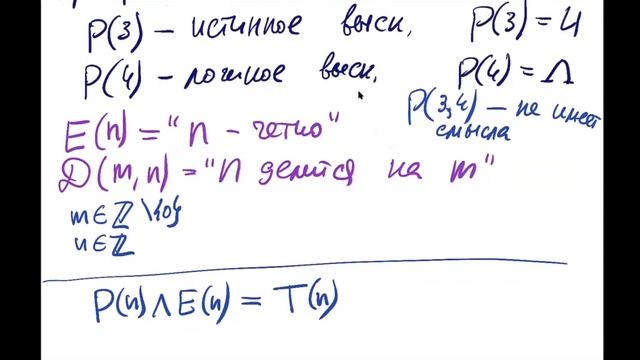 P(3) – истинное выск,
P(3) = И
P(4) – ложное выск,
P(4) = Л
P(3,4) – не имеет
смысла
E(n) = "n – четно"
D(m,n) = "n делится на m"
m ∈ ℤ \ {0}
n ∈ ℤ
P(n) ∧ E(n) = T(n)